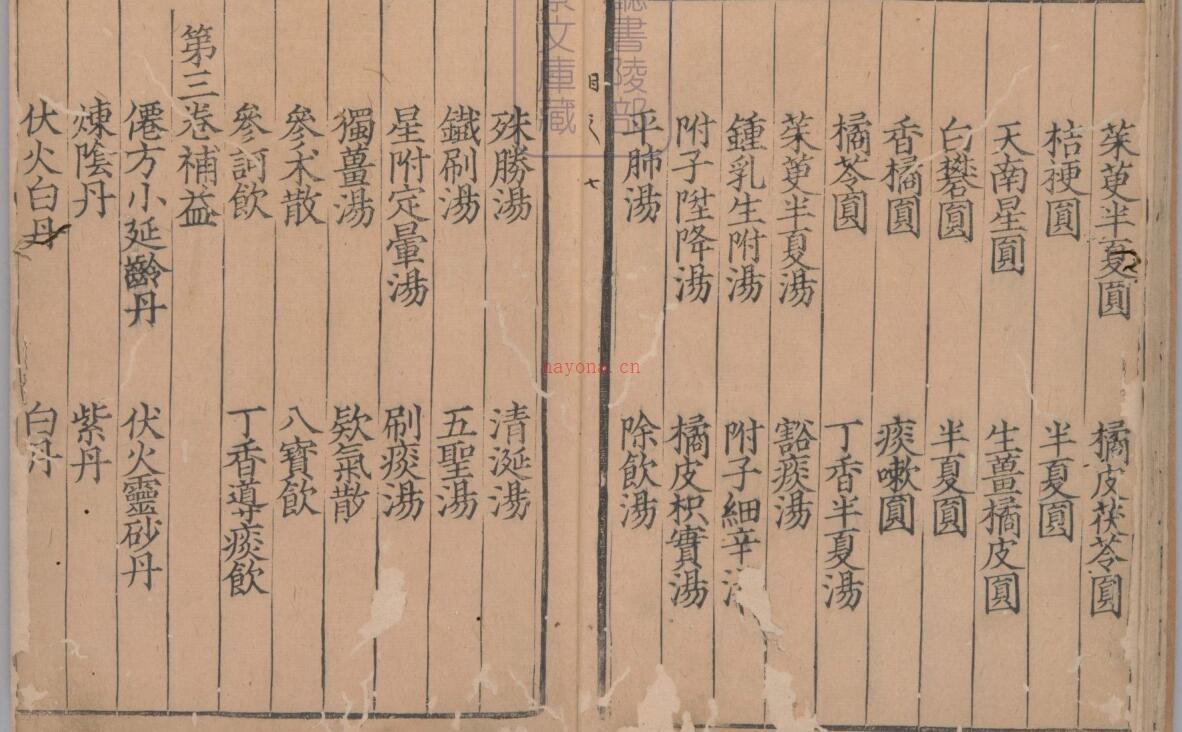 茱萸半夏圓 橘皮茯苓圓
桔梗圓 半夏圓
天南星圓 生薑橘皮圓
白礬圓 半夏圓
香橘圓 痰嗽圓
橘苓圓 丁香半夏湯
茱萸半夏湯 豁痰湯
鍾乳生附湯 附子細辛湯
附子陞降湯 橘皮枳實湯
平肺湯 除飲湯
目 七
殊勝湯 清涎湯
鐵刷湯 五聖湯
星附定暈湯 刷痰湯
獨薑湯 欵氣散
參朮散 八寶飲
參訶飲 丁香導痰飲
第三卷補益
僊方小延齡丹 伏火靈砂丹
煉陰丹 紫丹
伏火白丹 白丹
書陵部
文庫藏
nayona.cn